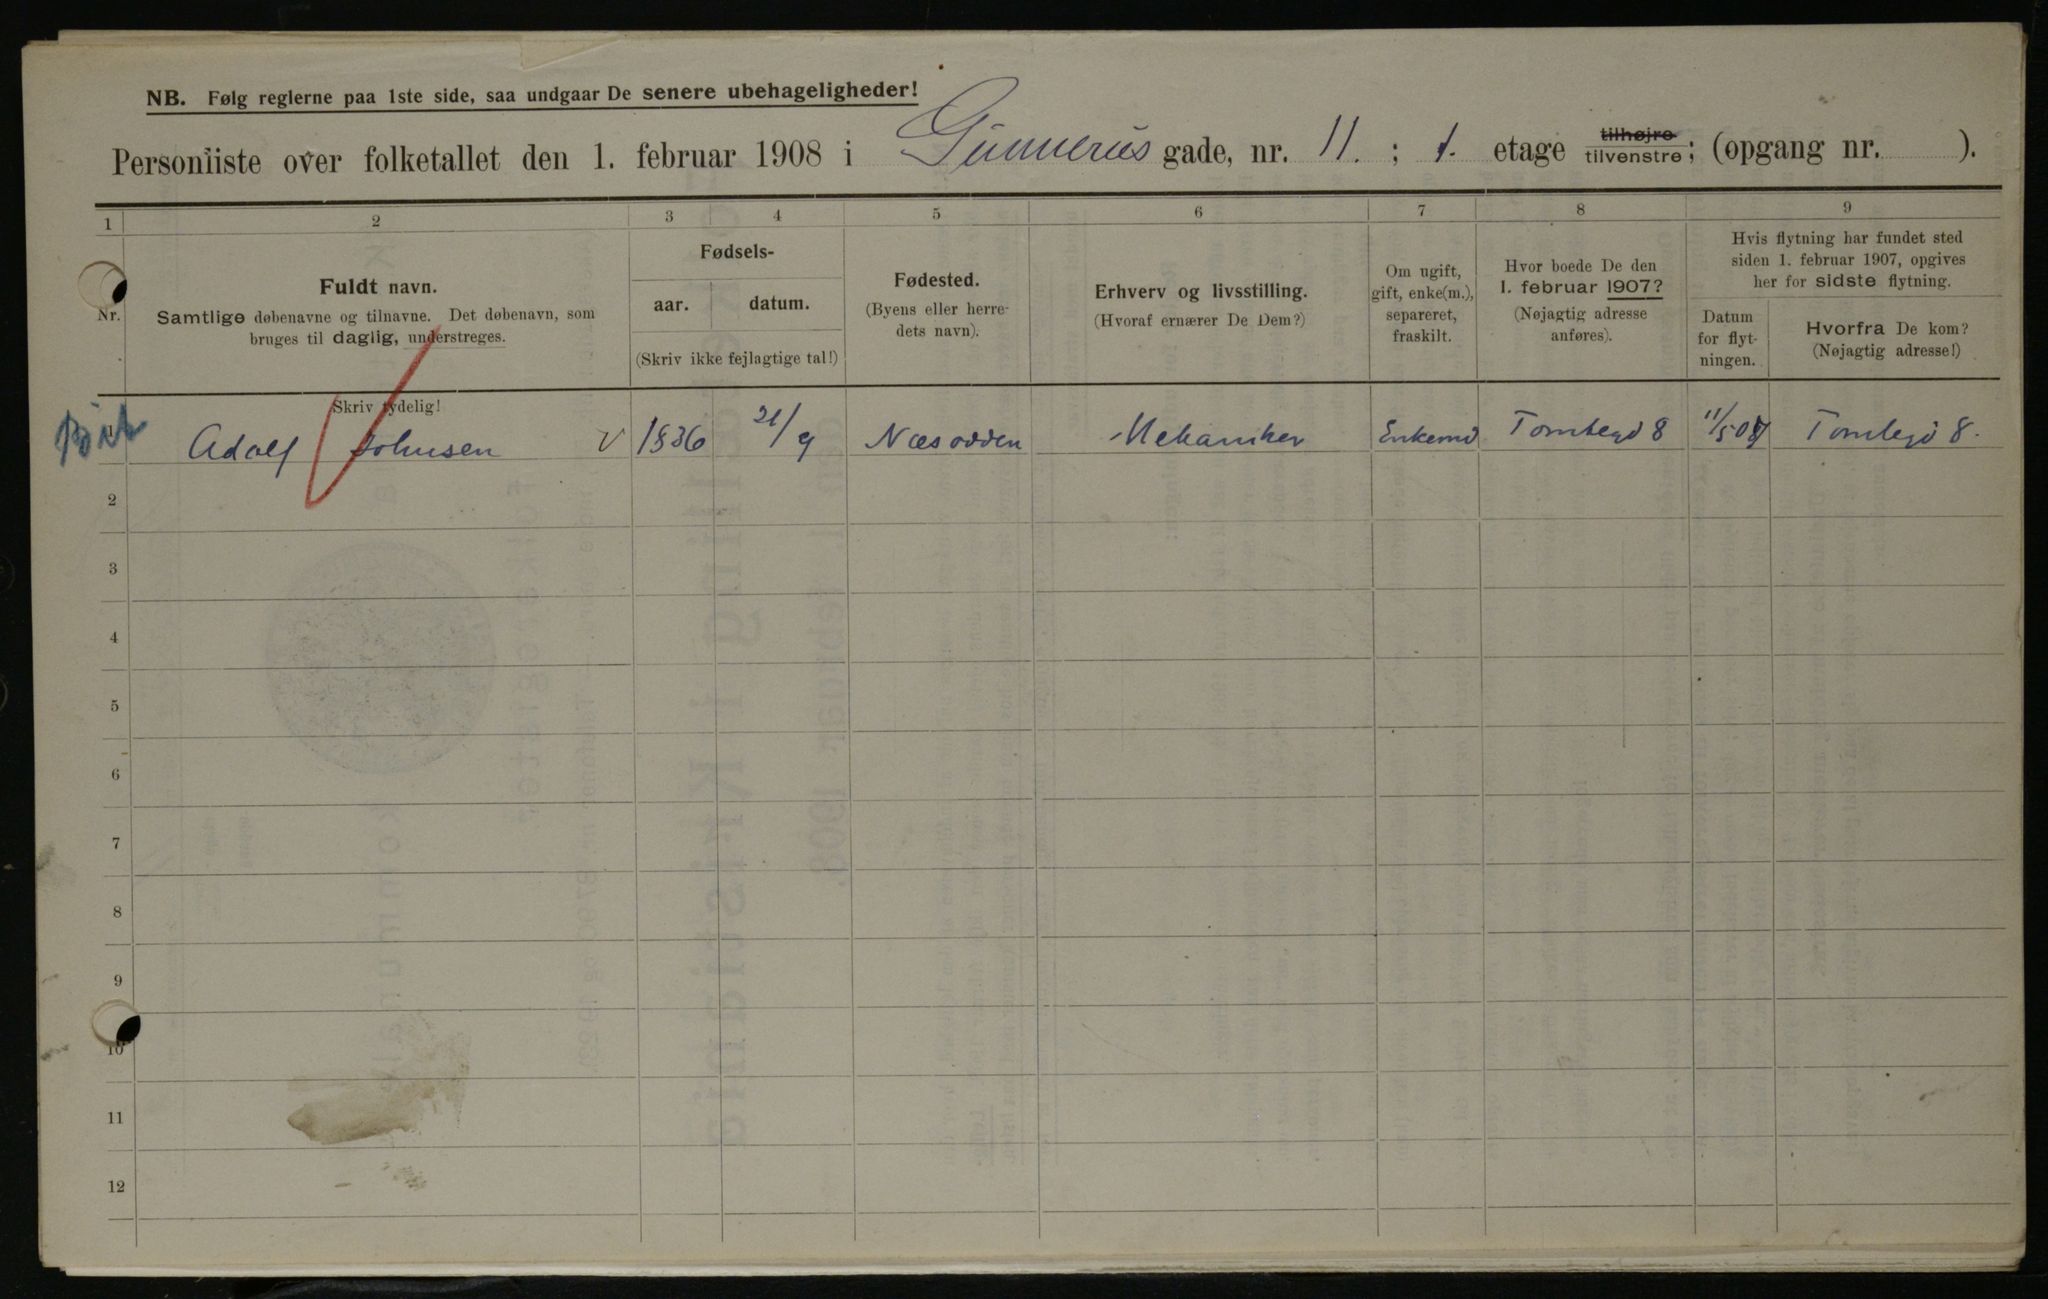 NB. Følg reglerne paa 1ste side, saa undgaar De senere ubehageligheder!
Personliste over folketallet den 1. februar 1908 i Gunnerus gade, nr. 11. ; 1. etage tilhøjre tilvenstre; (opgang nr. ).
1 2 3 4 5 6 7 8 9
Nr.
Fuldt navn.
Samtlige døbenavne og tilnavne. Det døbenavn, som
bruges til daglig, understreges.
Fødsels-
aar. datum.
(Skriv ikke fejlagtige tal!)
Fødested.
(Byens eller herre-
dets navn).
Erhverv og livsstilling.
(Hvoraf ernærer De Dem?)
Om ugift,
gift, enke(m.),
separeret,
fraskilt.
Hvor boede De den
1. februar 1907?
(Nøjagtig adresse
anføres).
Hvis flytning har fundet sted
siden 1. februar 1907, opgives
her for sidste flytning.
Datum
for flyt-
ningen.
Hvorfra De kom?
(Nøjagtig adresse!)
Skriv tydelig!
Adolf Johnsen V 1836 21/9 Næsodden Mekaniker Enkemd Tomtegd 8 11/5 07 Tomtegd 8.
2
3
4
5
6
7
8
9
10
11
12